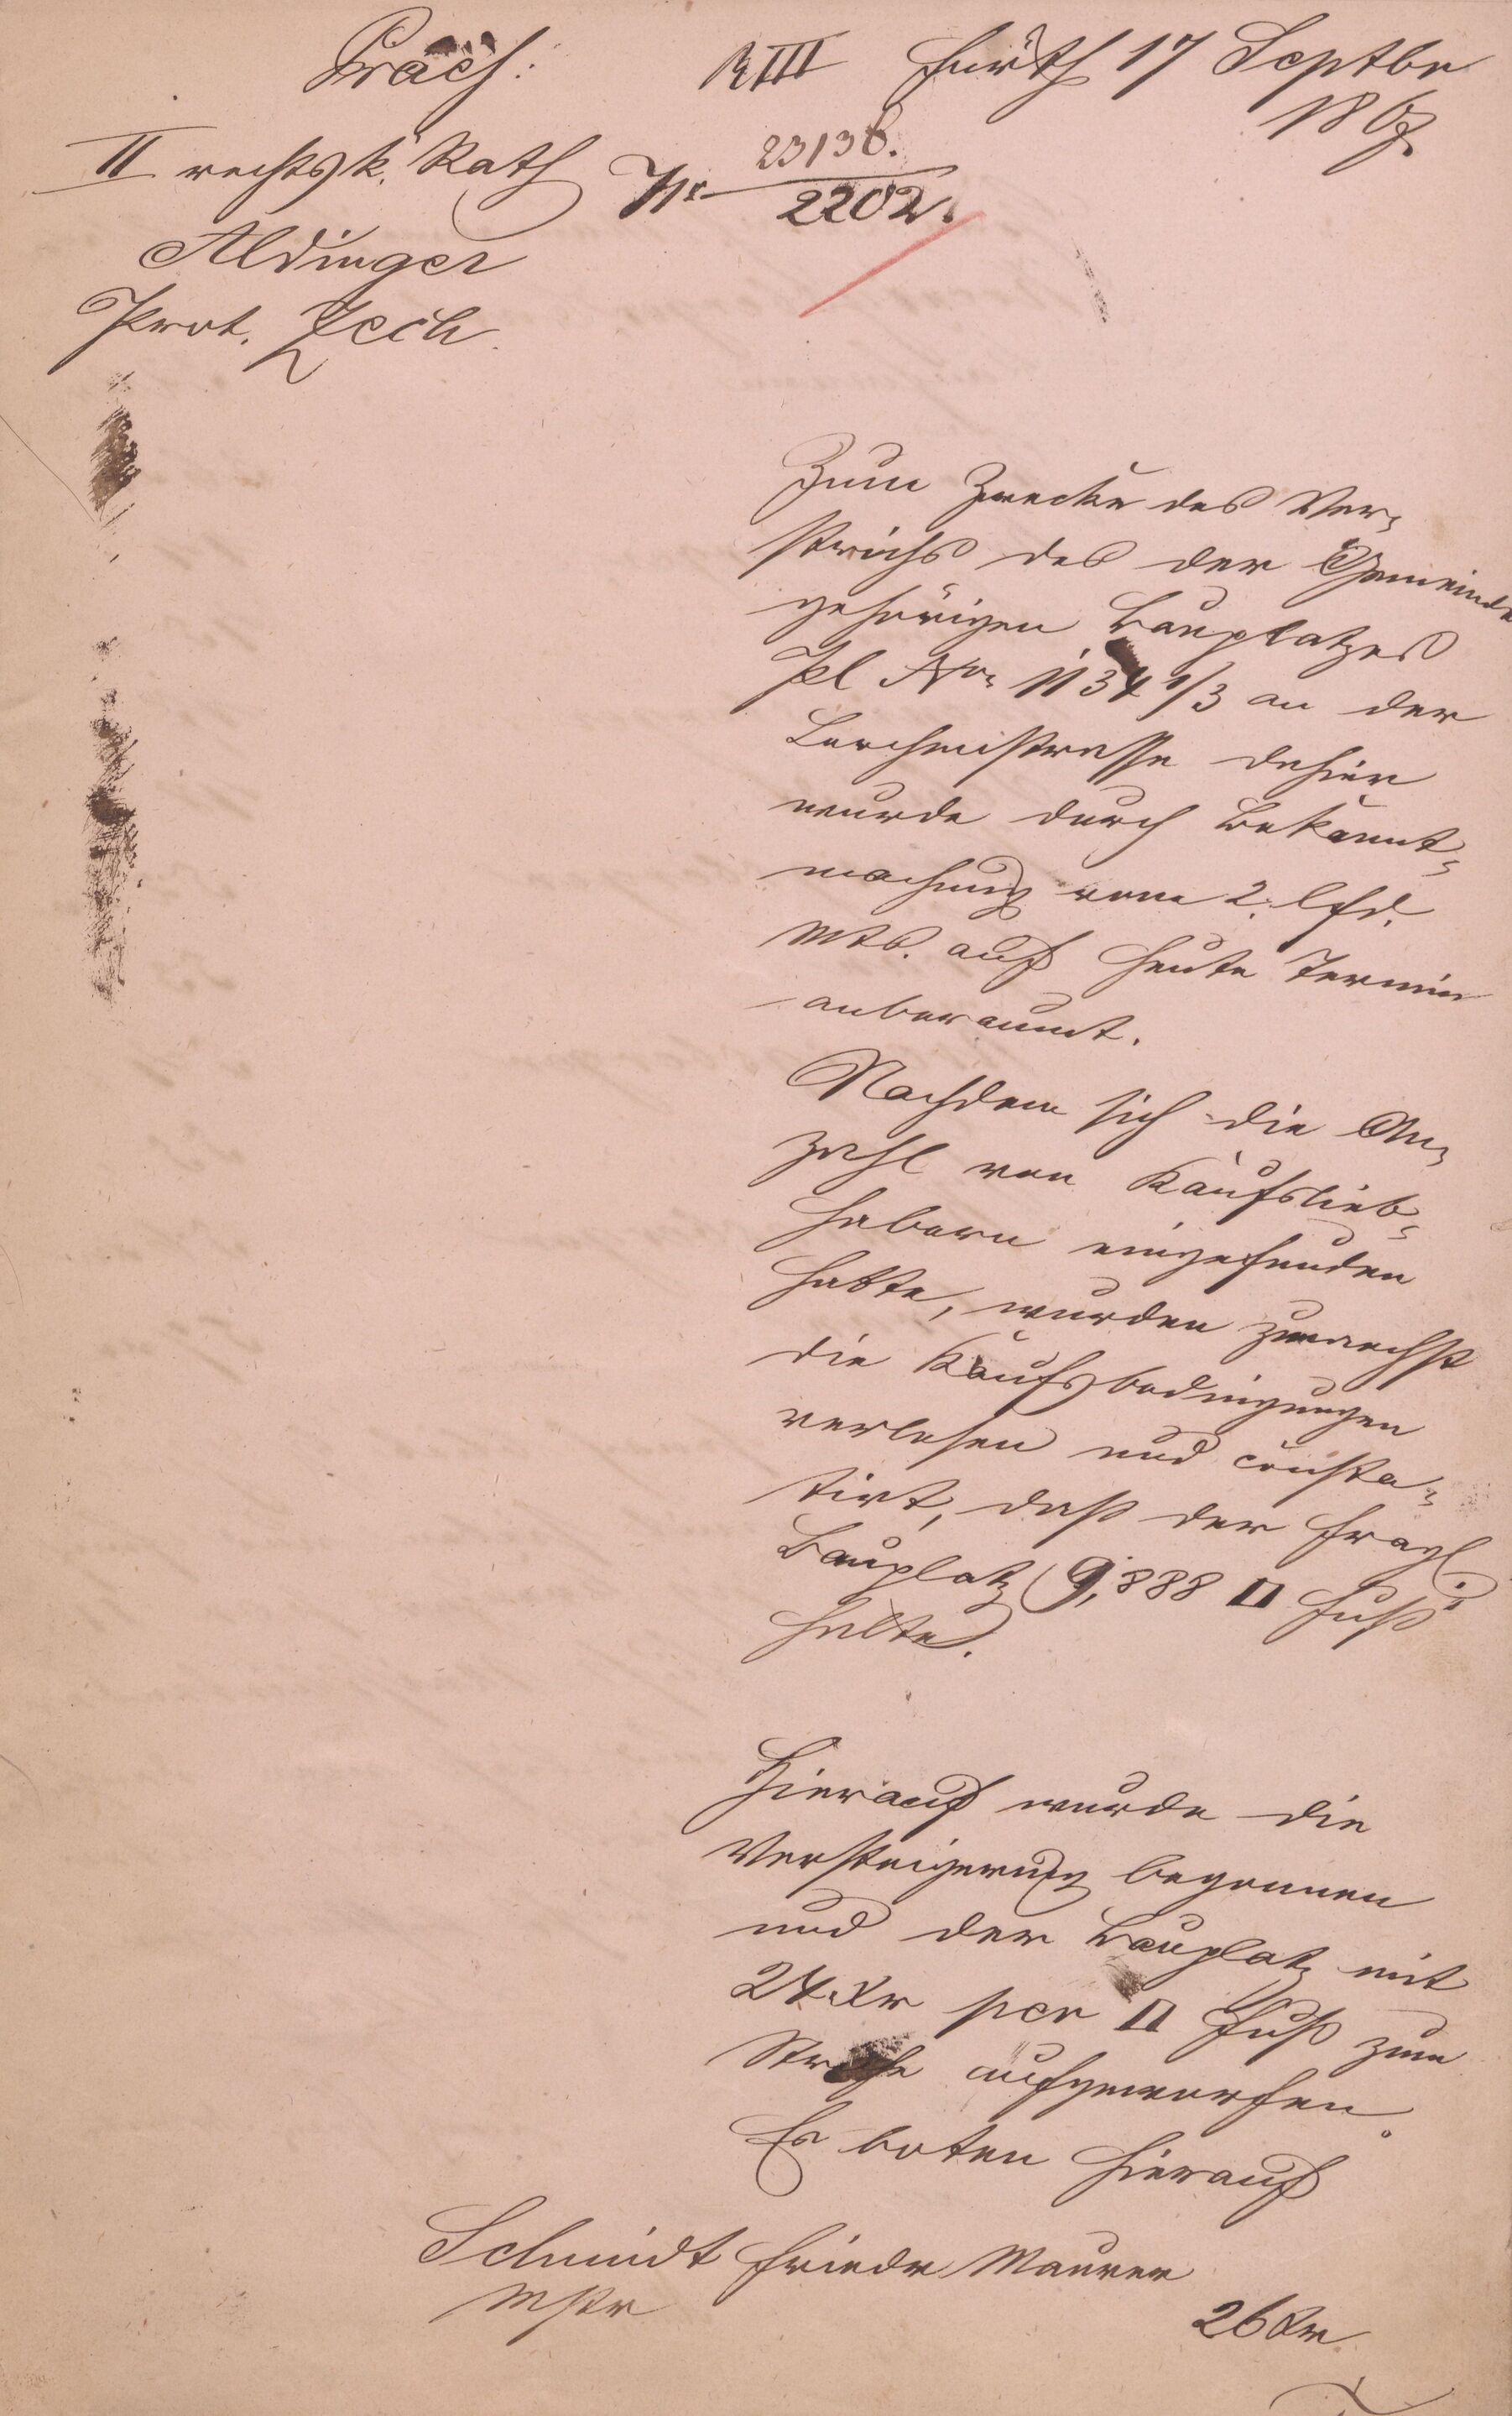 Präs:
R III Fürth 17 Septbr
1867.
II rechtsk. Rath
Nr 23136.
2202.
Aldinger
Prot. Zech.
Zum Zwecke des Ver-
strichs des der Gemeinde
gehörigen Bauplatzes
Pl Nro 1134 1/3 an der
Lerchenstrasse dahier
wurde durch Bekannt-
machung vom 2. lfd.
Mts. auf heute Termin
anberaumt.
Nachdem sich die An-
zahl von Kaufslieb-
habern eingefunden
hatte, wurden zunaechst
die Kaufsbedingungen
verlesen und consta-
tirt, daß der fragl.
Bauplatz 9,888 □ Fuß
halte.
Hierauf wurde die
Versteigerung begonnen
und der Bauplatz mit
24 Kr per □ Fuß zum
Striche aufgeworfen.
Es boten hierauf
Schmidt Friedr Maurer
Mstr
26 Kr.